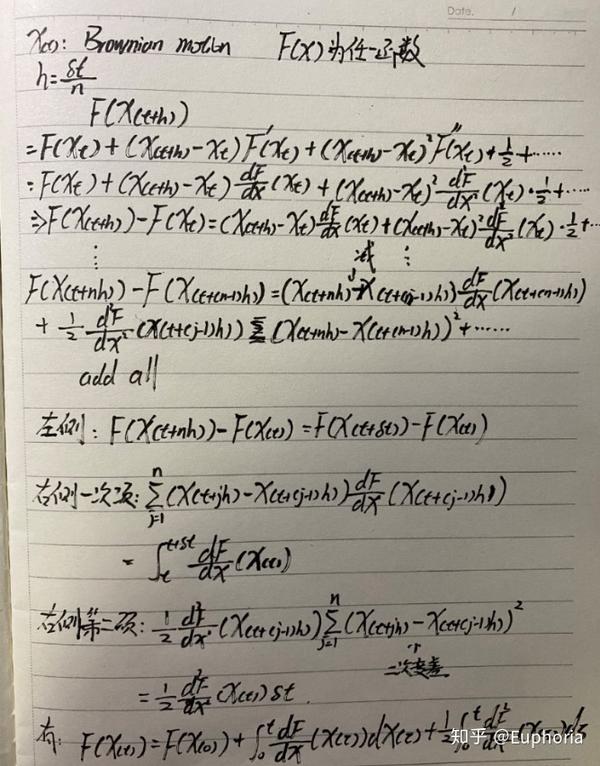 Date. /
X(t): Brownian motion F(X)为任一函数
h=δt/n
F(X(t+h))
=F(Xt)+(X(t+h)-Xt)F'(Xt)+(X(t+h)-Xt)²F''(Xt)·½+……
=F(Xt)+(X(t+h)-Xt)dF/dX(Xt)+(X(t+h)-Xt)²d²F/dX²(Xt)·½+…
⇒F(X(t+h))-F(Xt)=(X(t+h)-Xt)dF/dX(Xt)+(X(t+h)-Xt)²d²F/dX²(Xt)·½+…
⋮ ⋮
F(X(t+nh))-F(X(t+(n-1)h))=(X(t+nh)-X(t+(n-1)h))dF/dX(X(t+(n-1)h))
+½d²F/dX²(X(t+(j-1)h))(X(t+nh)-X(t+(n-1)h))²+……
add all
左侧:F(X(t+nh))-F(X(t))=F(X(t+δt))-F(X(t))
右侧一次项:∑ⁿⱼ₌₁(X(t+jh)-X(t+(j-1)h))dF/dX(X(t+(j-1)h))
=∫ₜᵗ⁺δᵗ dF/dX(X(t))
右侧第二项:½d²F/dX²(X(t+(j-1)h))∑ⁿⱼ₌₁(X(t+jh)-X(t+(j-1)h))²
二次变差
=½d²F/dX²(X(t))δt.
有:F(X(t))=F(X(0))+∫₀ᵗdF/dX(X(τ))dX(τ)+½∫₀ᵗd²F/dX²
知乎 @Euphoria